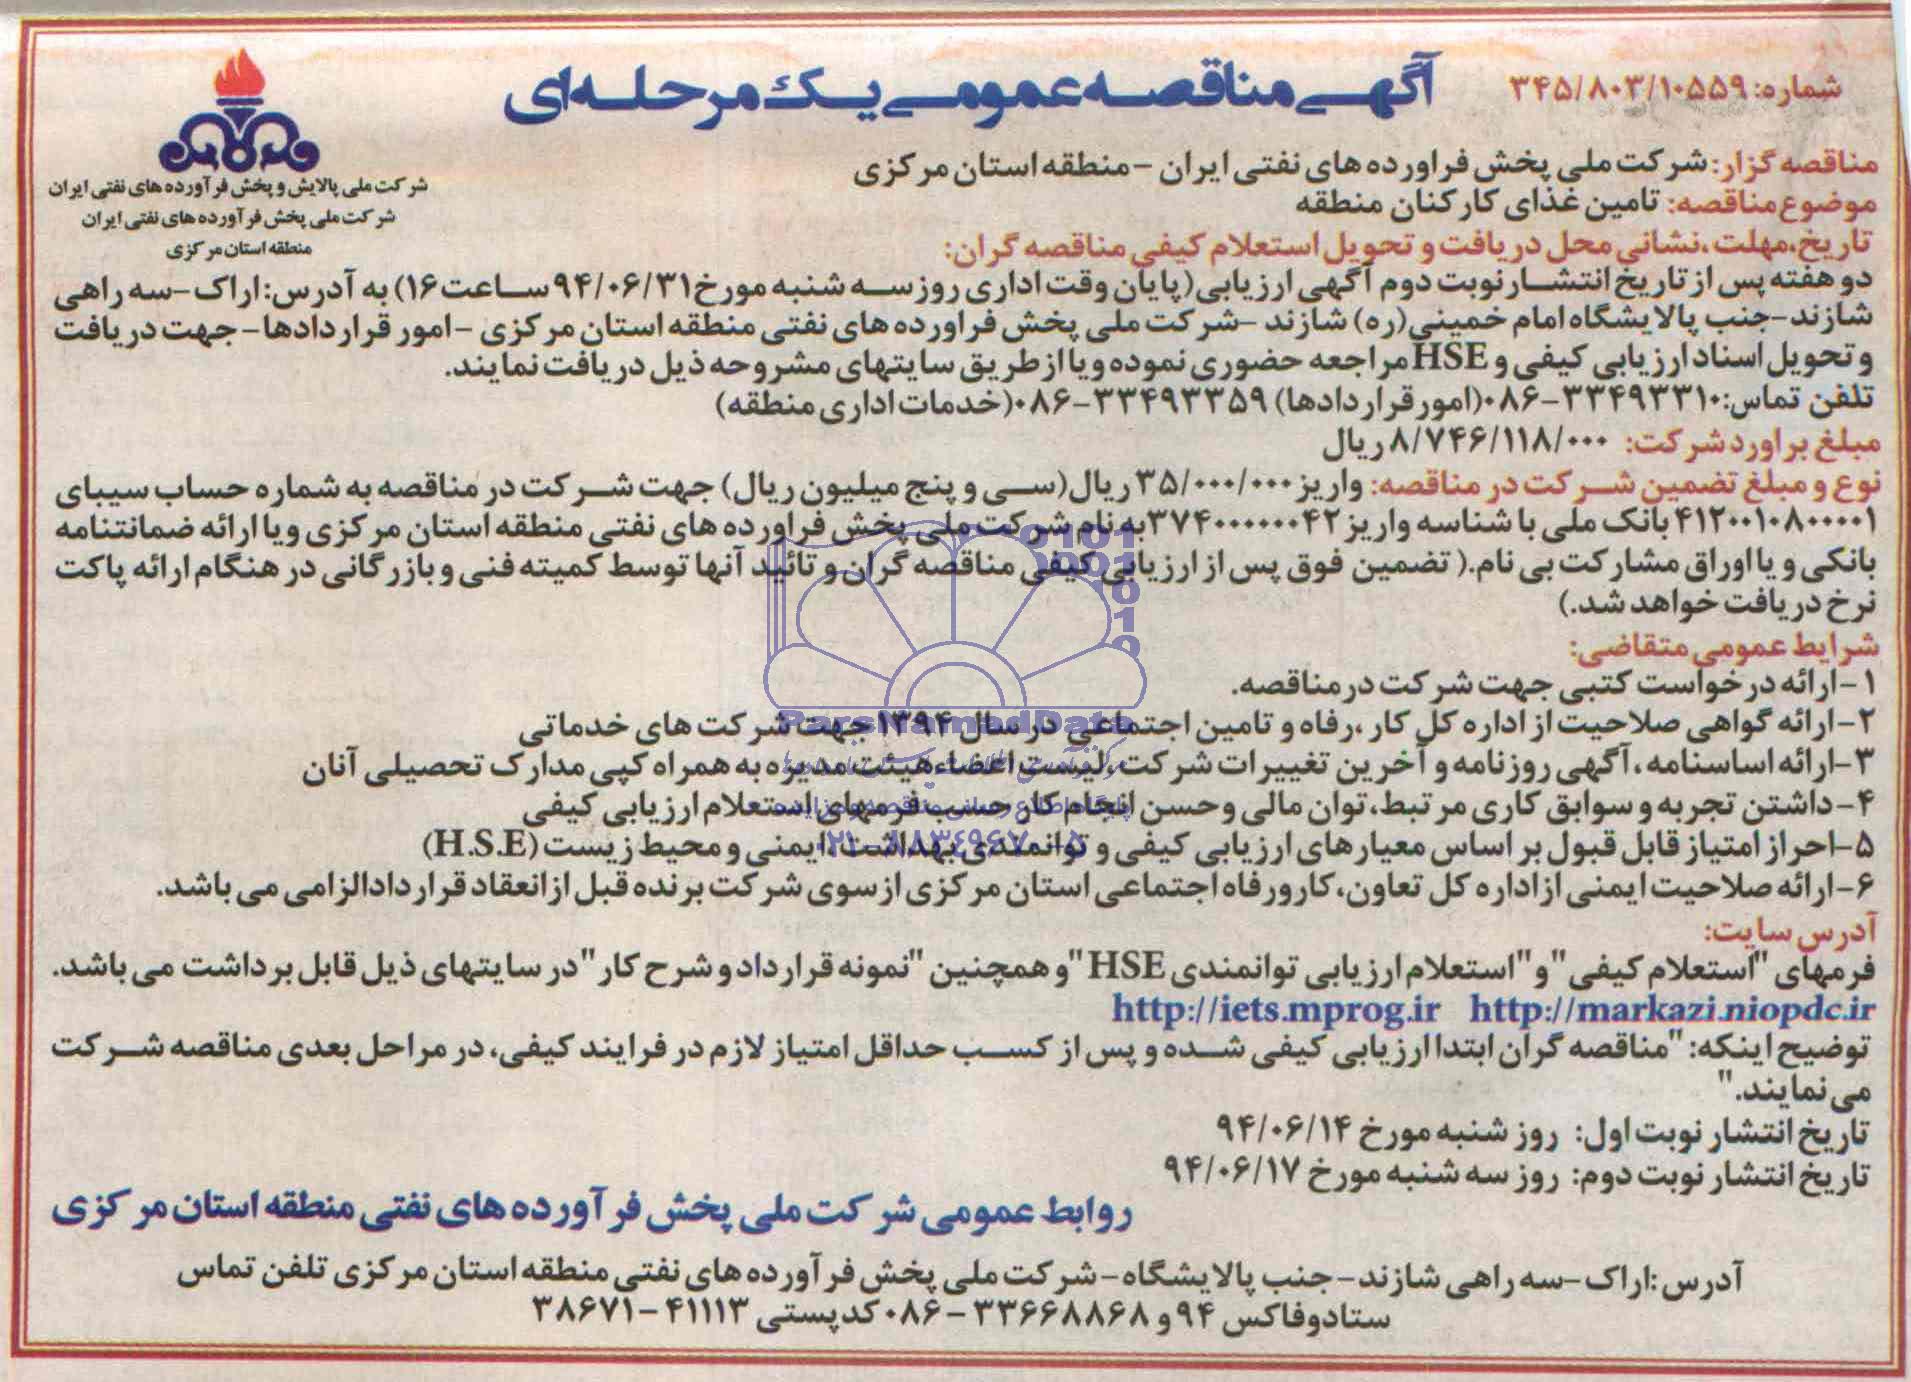 آگهی مناقصه عمومی یک مرحله‌ای
شماره: ۳۴۵/۸۰۳/۱۰۵۵۹
شرکت ملی پالایش و پخش فرآورده های نفتی ایران
شرکت ملی پخش فرآورده های نفتی ایران
منطقه استان مرکزی
مناقصه گزار: شرکت ملی پخش فراورده های نفتی ایران - منطقه استان مرکزی
موضوع مناقصه: تامین غذای کارکنان منطقه
تاریخ، مهلت، نشانی محل دریافت و تحویل استعلام کیفی مناقصه گران:
دو هفته پس از تاریخ انتشار نوبت دوم آگهی ارزیابی (پایان وقت اداری روز سه شنبه مورخ ۹۴/۰۶/۳۱ ساعت ۱۶) به آدرس: اراک - سه راهی
شازند - جنب پالایشگاه امام خمینی (ره) شازند - شرکت ملی پخش فراورده های نفتی منطقه استان مرکزی - امور قراردادها - جهت دریافت
و تحویل اسناد ارزیابی کیفی و HSE مراجعه حضوری نموده ویا از طریق سایتهای مشروحه ذیل دریافت نمایند.
تلفن تماس: ۳۳۴۹۳۳۱۰-۰۸۶ (امور قراردادها) ۳۳۴۹۳۳۵۹-۰۸۶ (خدمات اداری منطقه)
مبلغ براورد شرکت: ۸/۷۴۶/۱۱۸/۰۰۰ ریال
نوع و مبلغ تضمین شرکت در مناقصه: واریز ۳۵/۰۰۰/۰۰۰ ریال (سی و پنج میلیون ریال) جهت شرکت در مناقصه به شماره حساب سیبای
۴۱۲۰۰۱۰۸۰۰۰۰۱ بانک ملی با شناسه واریز ۳۷۴۰۰۰۰۰۰۴۲ به نام شرکت ملی پخش فراورده های نفتی منطقه استان مرکزی ویا ارائه ضمانتنامه
بانکی و یا اوراق مشارکت بی نام. ( تضمین فوق پس از ارزیابی کیفی مناقصه گران و تائید آنها توسط کمیته فنی و بازرگانی در هنگام ارائه پاکت
نرخ دریافت خواهد شد.)
شرایط عمومی متقاضی:
۱- ارائه درخواست کتبی جهت شرکت در مناقصه.
۲- ارائه گواهی صلاحیت از اداره کل کار، رفاه و تامین اجتماعی در سال ۱۳۹۴ جهت شرکت های خدماتی
۳- ارائه اساسنامه، آگهی روزنامه و آخرین تغییرات شرکت، لیست اعضاء هیئت مدیره به همراه کپی مدارک تحصیلی آنان
۴- داشتن تجربه و سوابق کاری مرتبط، توان مالی و حسن انجام کار حسب فرمهای استعلام ارزیابی کیفی
۵- احراز امتیاز قابل قبول بر اساس معیارهای ارزیابی کیفی و توانمندی بهداشت، ایمنی و محیط زیست (H.S.E)
۶- ارائه صلاحیت ایمنی از اداره کل تعاون، کار و رفاه اجتماعی استان مرکزی از سوی شرکت برنده قبل از انعقاد قرارداد الزامی می باشد.
آدرس سایت:
فرمهای "استعلام کیفی" و "استعلام ارزیابی توانمندی HSE" و همچنین "نمونه قرارداد و شرح کار" در سایتهای ذیل قابل برداشت می باشد.
http://iets.mprog.ir http://markazi.niopdc.ir
توضیح اینکه: "مناقصه گران ابتدا ارزیابی کیفی شده و پس از کسب حداقل امتیاز لازم در فرایند کیفی، در مراحل بعدی مناقصه شرکت
می نمایند."
تاریخ انتشار نوبت اول: روز شنبه مورخ ۹۴/۰۶/۱۴
تاریخ انتشار نوبت دوم: روز سه شنبه مورخ ۹۴/۰۶/۱۷
روابط عمومی شرکت ملی پخش فرآورده های نفتی منطقه استان مرکزی
آدرس: اراک - سه راهی شازند - جنب پالایشگاه - شرکت ملی پخش فرآورده های نفتی منطقه استان مرکزی تلفن تماس
ستاد و فاکس ۹۴ و ۳۳۶۶۸۸۶۸ - ۰۸۶ کدپستی ۴۱۱۱۳ - ۳۸۶۷۱
ParsNamadData